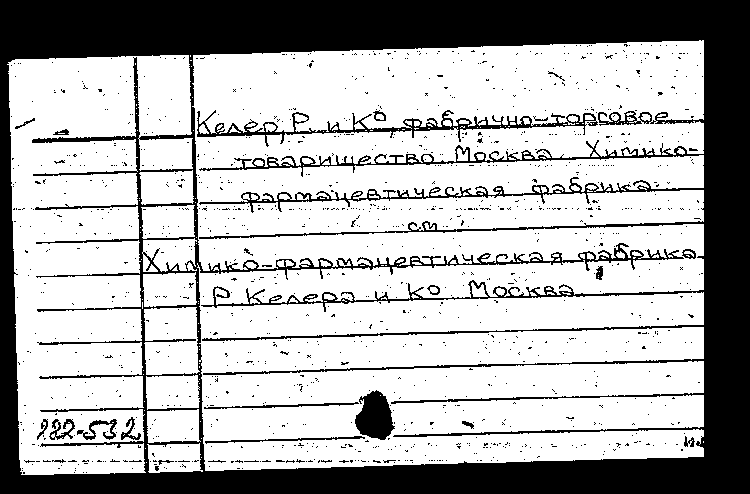 Келер, Р. и К⁰, фабрично-торговое
товарищество. Москва. Химико-
фармацевтическая фабрика.
см.
Химико-фармацевтическая фабрика
Р. Келера и К⁰. Москва.
282-532